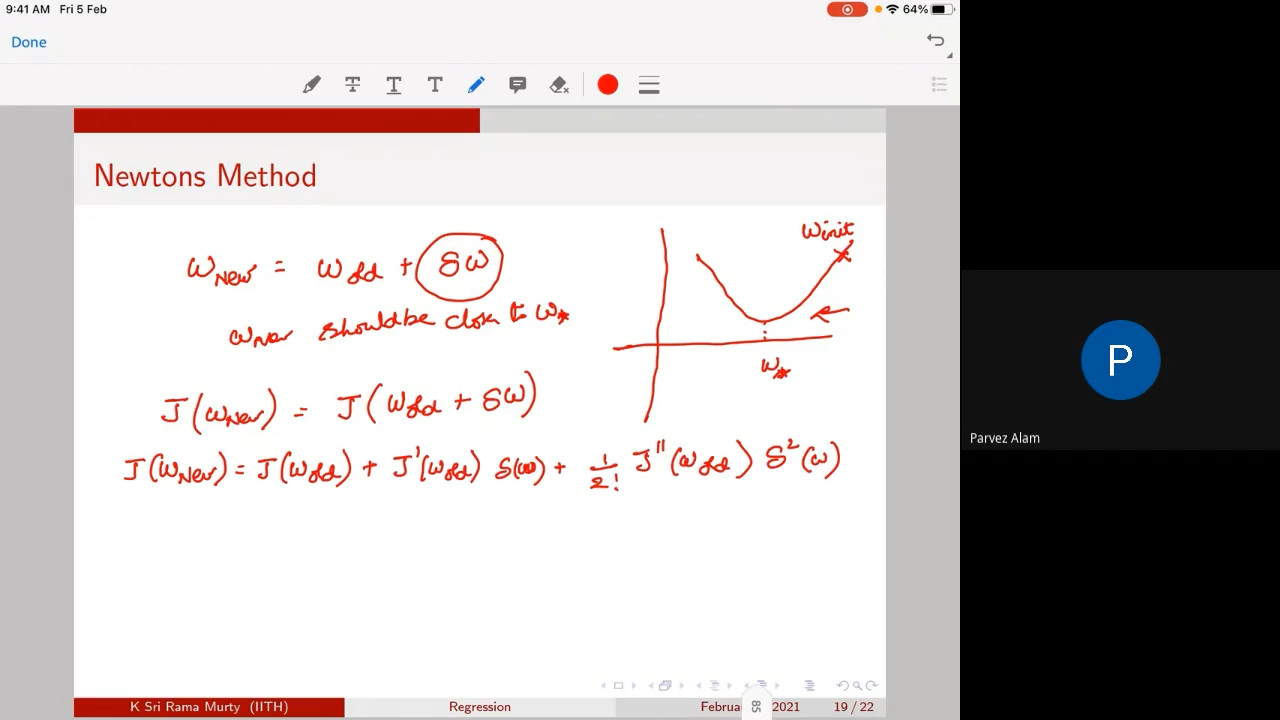 9:41 AM Fri 5 Feb
64%
Done
Newtons Method
w_New = w_old + δw
w_init
w_New should be close to w_*
w_*
J(w_New) = J(w_old + δw)
J(w_New) = J(w_old) + J'(w_old) δ(w) + 1/2! J''(w_old) δ²(w)
Parvez Alam
P
K Sri Rama Murty (IITH) Regression Februa 2021 19 / 22
85